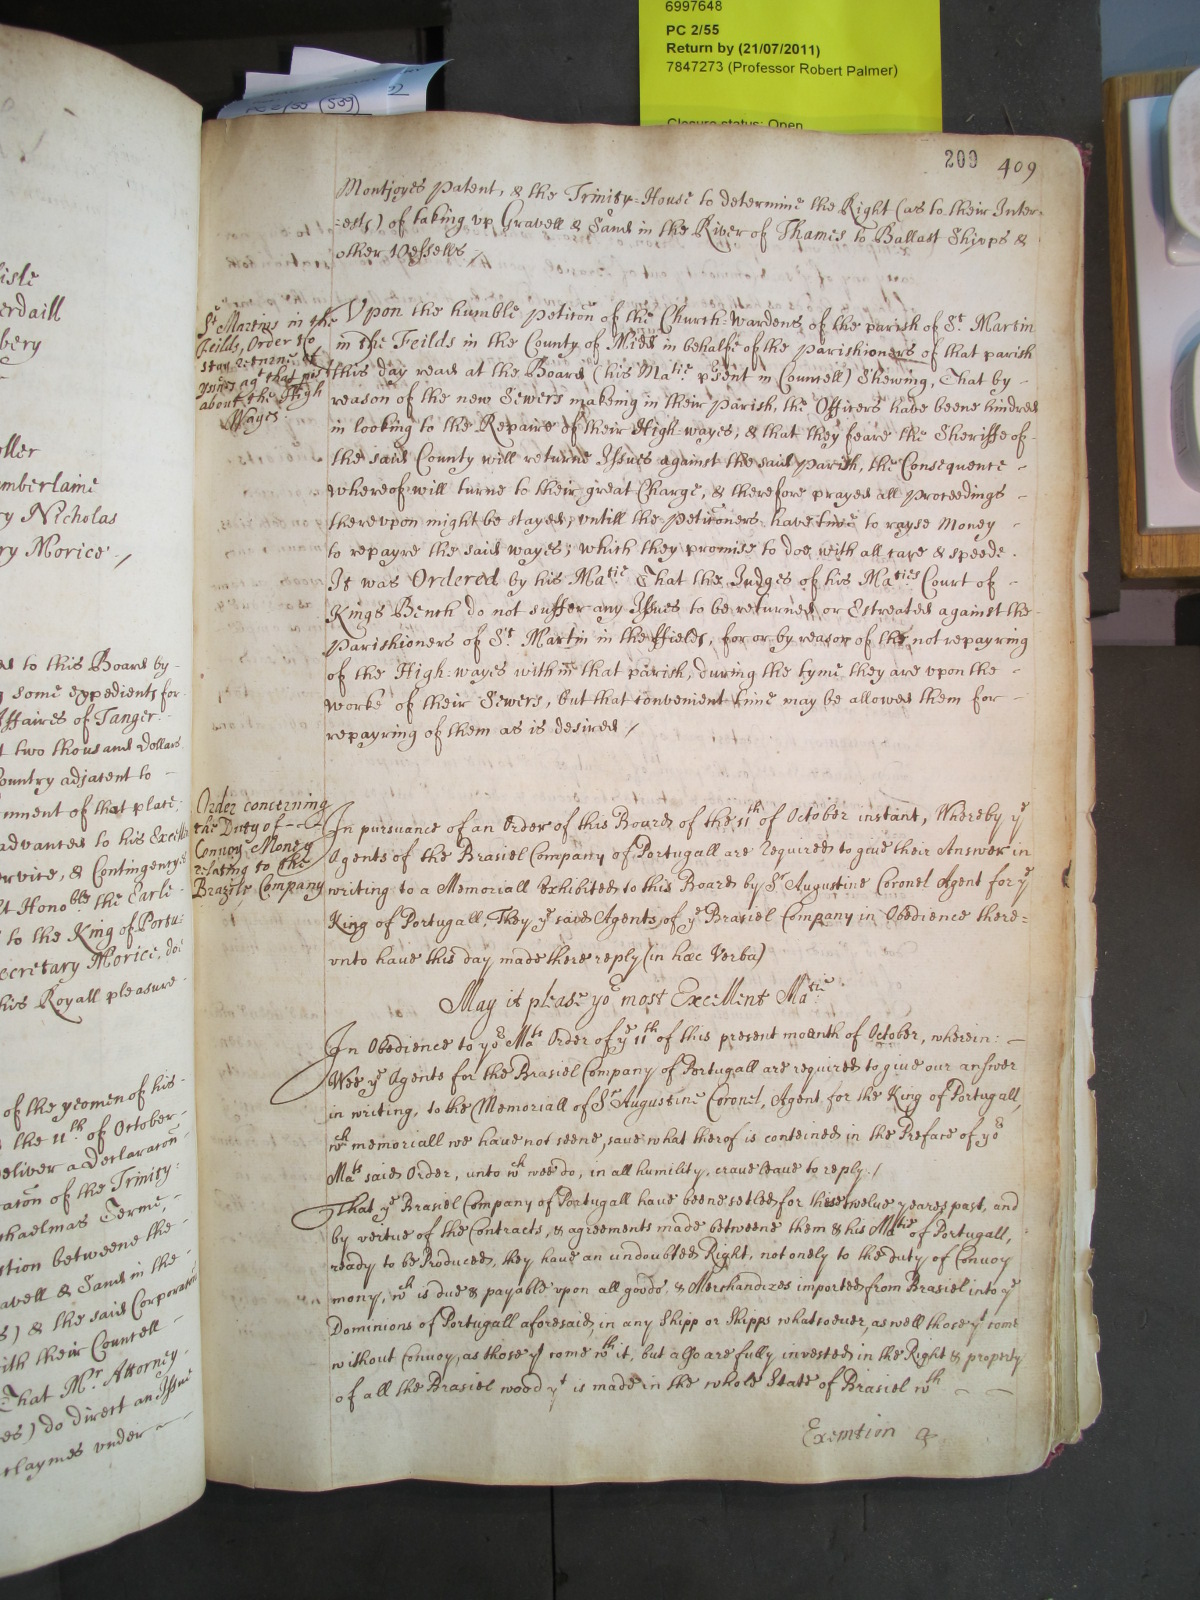 6997648
PC 2/55
Return by (21/07/2011)
7847273 (Professor Robert Palmer)
Closure status: Open
PC 2/55 (539)
209 409
Montjoyes Patent, & the Trinity-House to determine the Right (as to their Inter-
=ests) of taking vp Gravell & Sand in the River of Thames to Ballast Shipps &
other Vessells /
St. Martins in the
Feilds, Order to
stay returne of
agt that
about the High
Wayes
Vpon the humble Peticon of the Church-Wardens of the parish of St. Martin
in the Feilds in the County of Midd in behalfe of the Parishioners of that parish
this day read at the Board (his Matie. psent in Councell) Shewing, That by -
reason of the new Sewers making in their Parish, the Officers have beene hindred
in looking to the Repaire of their High-wayes, & that they feare the Sheriffe of -
the said County will returne Issues against the said Parish, the Consequence -
whereof will turne to their great Charge, & therefore prayed all Proceedings -
therevpon might be stayed, vntill the Peticoners have time to rayse Money -
to repayre the said wayes; which they promise to doe with all care & speede.
It was Ordered by his Matie. That the Judges of his Maties Court of -
Kings Bench do not suffer any Issues to be returned or Estreated against the
Parishioners of St. Martin in the ffields, for or by reason of the not repayring
of the High-wayes within that parish, during the tyme they are vpon the -
worke of their Sewers, but that convenient time may be allowed them for -
repayring of them as is desired /
Order concerning
the Duty of - -
Convoy Money
relating to the
Brazile Company
In pursuance of an Order of this Board of the 11th of October instant, Whereby ye
Agents of the Brasiel Company of Portugall are required to giue their Answer in
writing to a Memoriall Exhibited to this Board by Sr. Augustine Coronel Agent for ye
King of Portugall, They ye said Agents of ye Brasiel Company in Obedience there=
vnto haue this day made there reply (in hæc Verba)
May it please yor most Excellent Matie:
In Obedience to yor Mats Order of ye 11th of this present moenth of October, wherein: -
Wee ye Agents for the Brasiel Company of Portugall are required to giue our answer
in writing, to the Memoriall of Sr Augustine Coronel, Agent for the King of Portugall,
wch memoriall we haue not seene, saue what therof is conteined in the Preface of yor
Mats said Order, unto wch wee do, in all humility, craue leaue to reply. /
That ye Brasiel Company of Portugall haue beene setled for these twelue yeares past, and
by vertue of the Contracts, & agreements made betweene them & his Matie of Portugall,
ready to be Produced, they haue an undoubted Right, not onely to the duty of Convoy
mony, wch is due & payable vpon all goods, & Merchandizes imported from Brasiel into ye
Dominions of Portugall aforesaid, in any Shipp or Shipps whatsoeuer, as well those yt come
without Convoy, as those yt come wth it, but also are fully invested in the Right & property
of all the Brasiel wood yt is made in the whole State of Brasiel wth - -
Exemtion &
isle
erdaill
bery
oller
mberlaine
ry Nicholas
ry Morice. /
ed to this Board by -
g some expedients for -
Affaires of Tanger.
t two thousand Dollars
Country adjacent to -
nment of that place:
advanced to his
ervice, & Contingency
t Honoble the Earle -
to the King of Portu:
ecretary Morice, do
his Royall pleasure -
of the yeomen of his -
the 11th of October -
deliver a Declaracon
racon of the Trinity:
chaelmas Terme, -
stion betweene the -
ravell & Sand in the -
s) & the said Corporacon
ith their Councell -
That Mr. Attorney -
es) do direct an Issue
claymes vnder -